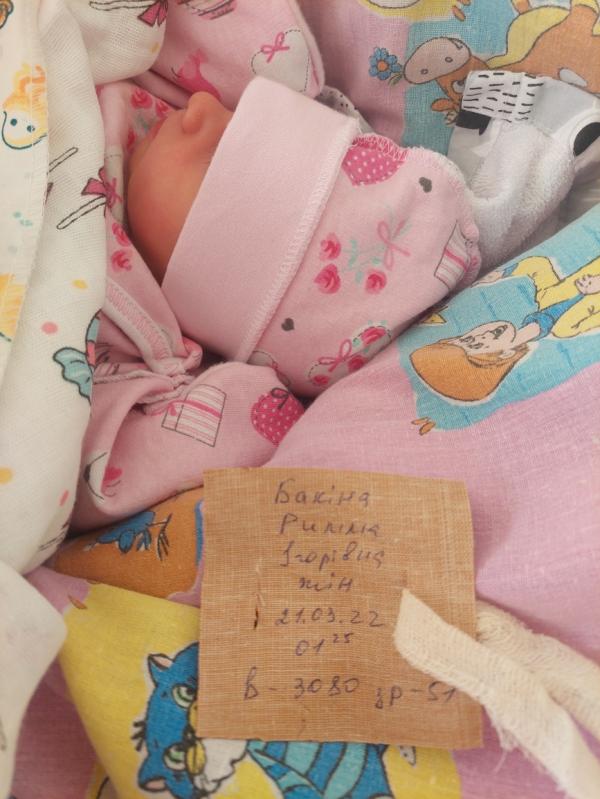 Бакіна
Римма
Ігорівна
жін
21.03.22
01 25
в - 3080 зр - 51